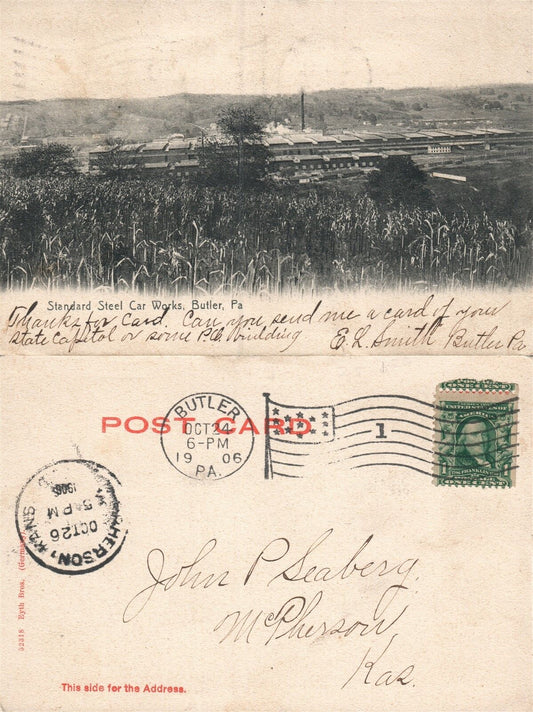 Standard Steel Car Works, Butler, Pa
Thanks for Card. Can you send me a card of your
State Capitol or some P.O. building E. L. Smith Butler Pa
POST CARD
BUTLER
OCT 24
6-PM
1906
PA.
1
McPHERSON, KANS
OCT 26
5 PM
1906
John P Seaberg.
McPherson
Kas.
52318 Eyth Bros. (Germany)
This side for the Address.